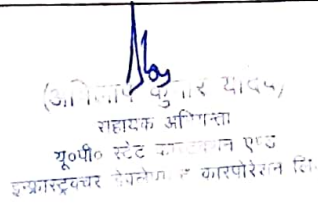 (अभिलाष कुमार यादव)
सहायक अभियन्ता
यू०पी० स्टेट कन्सट्रक्शन एण्ड
इन्फ्रास्ट्रक्चर डेवलेपमेन्ट कारपोरेशन लि०